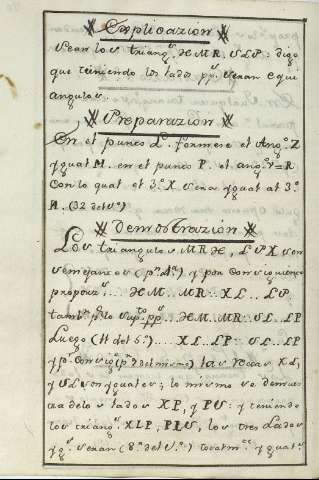 Explicazion
Sean los triang.s HMR, SLP: digo
que teniendo los lados pp.s seran equi
angulos.
Preparazion
En el punto L. formese el Ang.o Z
ygual M. en el punto P. el ang.o V=R
Con lo qual el 3.o X sera ygual al 3.o
H. (32 del 1.o)
Demostrazion
Los triangulos MRH, LPX son
semejantes (p.r 4.a) y por Consiguiente
proporz.s ... HM.. MR:: XL.. LP.
tamb.n p.r lo sup.to pp.s .. HM.. MR:: SL.. LP
Luego (11 del 5.o) .... XL.. LP:: SL.. LP
y p.r Consig.te (p.r 9 del mismo) las rectas XL,
y SL son yguales; lo mismo se demues
tra de los lados XP, y PS: y teniendo
los triang.s XLP, PLS, los tres Lados
yg.s seran (8.a del 1.o) totalm.te yguals